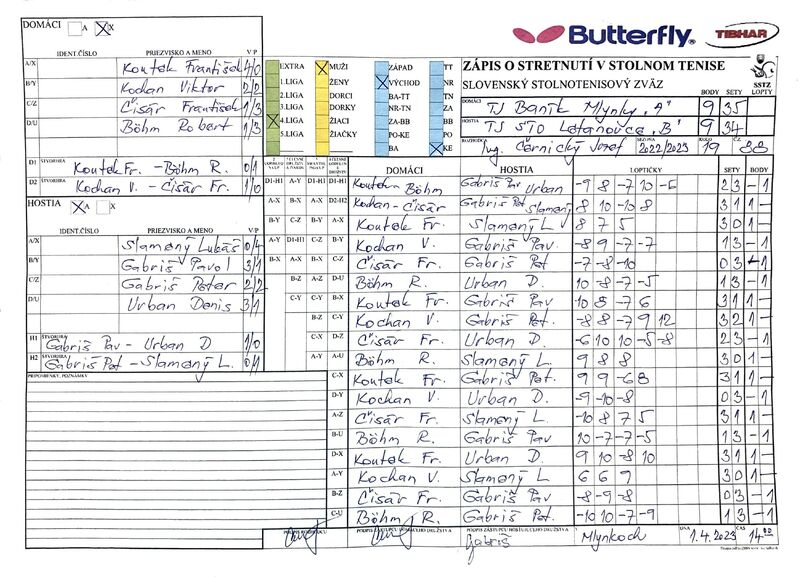 DOMÁCI A X
Butterfly TIBHAR
IDENT.ČÍSLO PRIEZVISKO A MENO V P
A/X Koutek František 4/0
B/Y Kochan Viktor 2/2
C/Z Čisár František 1/3
D/U Böhm Robert 1/3
D1 ŠTVORHRA Koutek Fr. - Böhm R. 0/1
D2 ŠTVORHRA Kochan V. - Čisár Fr. 1/0
HOSTIA A X
IDENT.ČÍSLO PRIEZVISKO A MENO V P
A/X Slamený Lukáš 0/4
B/Y Gabriš Pavol 3/1
C/Z Gabriš Peter 2/2
D/U Urban Denis 3/1
H1 ŠTVORHRA Gabriš Pav - Urban D 1/0
H2 ŠTVORHRA Gabriš Pet - Slamený L. 0/1
PRIPOMIENKY, POZNÁMKY
EXTRA MUŽI ZÁPAD TT
1.LIGA ŽENY VÝCHOD NR
2.LIGA DORCI BA-TT TN
3.LIGA DORKY NR-TN ZA
4.LIGA ŽIACI ZA-BB BB
5.LIGA ŽIAČKY PO-KE PO
BA KE
ZÁPIS O STRETNUTÍ V STOLNOM TENISE
SLOVENSKÝ STOLNOTENISOVÝ ZVÄZ SSTZ
BODY SETY LOPTY
DOMÁCI TJ Baník Mlynky "A" 9 35
HOSTIA TJ STO Letanovce "B" 9 34
ROZHODCA Ing. Černický Jozef SEZÓNA 2022/2023 KOLO 19 Č.Z.
DOMÁCI HOSTIA LOPTIČKY SETY BODY
D1-H1 A-Y D1-H1 D1-H1 Koutek Böhm Gabriš Pav Urban -9 8 -7 10 -6 2 3 - 1
A-X B-X A-X D2-H2 Kochan - Čisár Gabriš Pet Slamený 8 10 -10 8 3 1 1 -
B-Y C-Z B-Y A-X Koutek Fr. Slamený L 8 7 5 3 0 1 -
A-Y D1-H1 C-Z B-Y Kochan V. Gabriš Pav. -8 9 -7 -7 1 3 - 1
B-X A-X B-X C-Z Čisár Fr. Gabriš Pet -7 -8 -10 0 3 - 1
B-Z A-Z D-U Böhm R. Urban D. 10 -8 -7 -5 1 3 - 1
C-Y C-Y B-X Koutek Fr. Gabriš Pav 10 8 -7 6 3 1 1 -
B-Z C-Y Kochan V. Gabriš Pet. -8 8 -7 9 12 3 2 1 -
C-X D-Z Čisár Fr. Urban D. -6 10 10 -5 -8 2 3 - 1
A-Y A-U Böhm R. Slamený L. 9 8 8 3 0 1 -
C-X Koutek Fr. Gabriš Pet. 9 9 -6 8 3 1 1 -
D-Y Kochan V. Urban D. -9 -10 -8 0 3 - 1
A-Z Čisár Fr. Slamený L. -10 8 7 5 3 1 1 -
B-U Böhm R. Gabriš Pav 10 -7 -7 -5 1 3 - 1
D-X Koutek Fr. Urban D 9 10 -8 10 3 1 1 -
A-Y Kochan V. Slamený L 6 6 9 3 0 1 -
B-Z Čisár Fr. Gabriš Pav -8 -9 -8 0 3 - 1
C-U Böhm R. Gabriš Pet. -10 10 -7 -9 1 3 - 1
Gabriš Mlynkoch DŇA 1.4.2023 ČAS 14 00